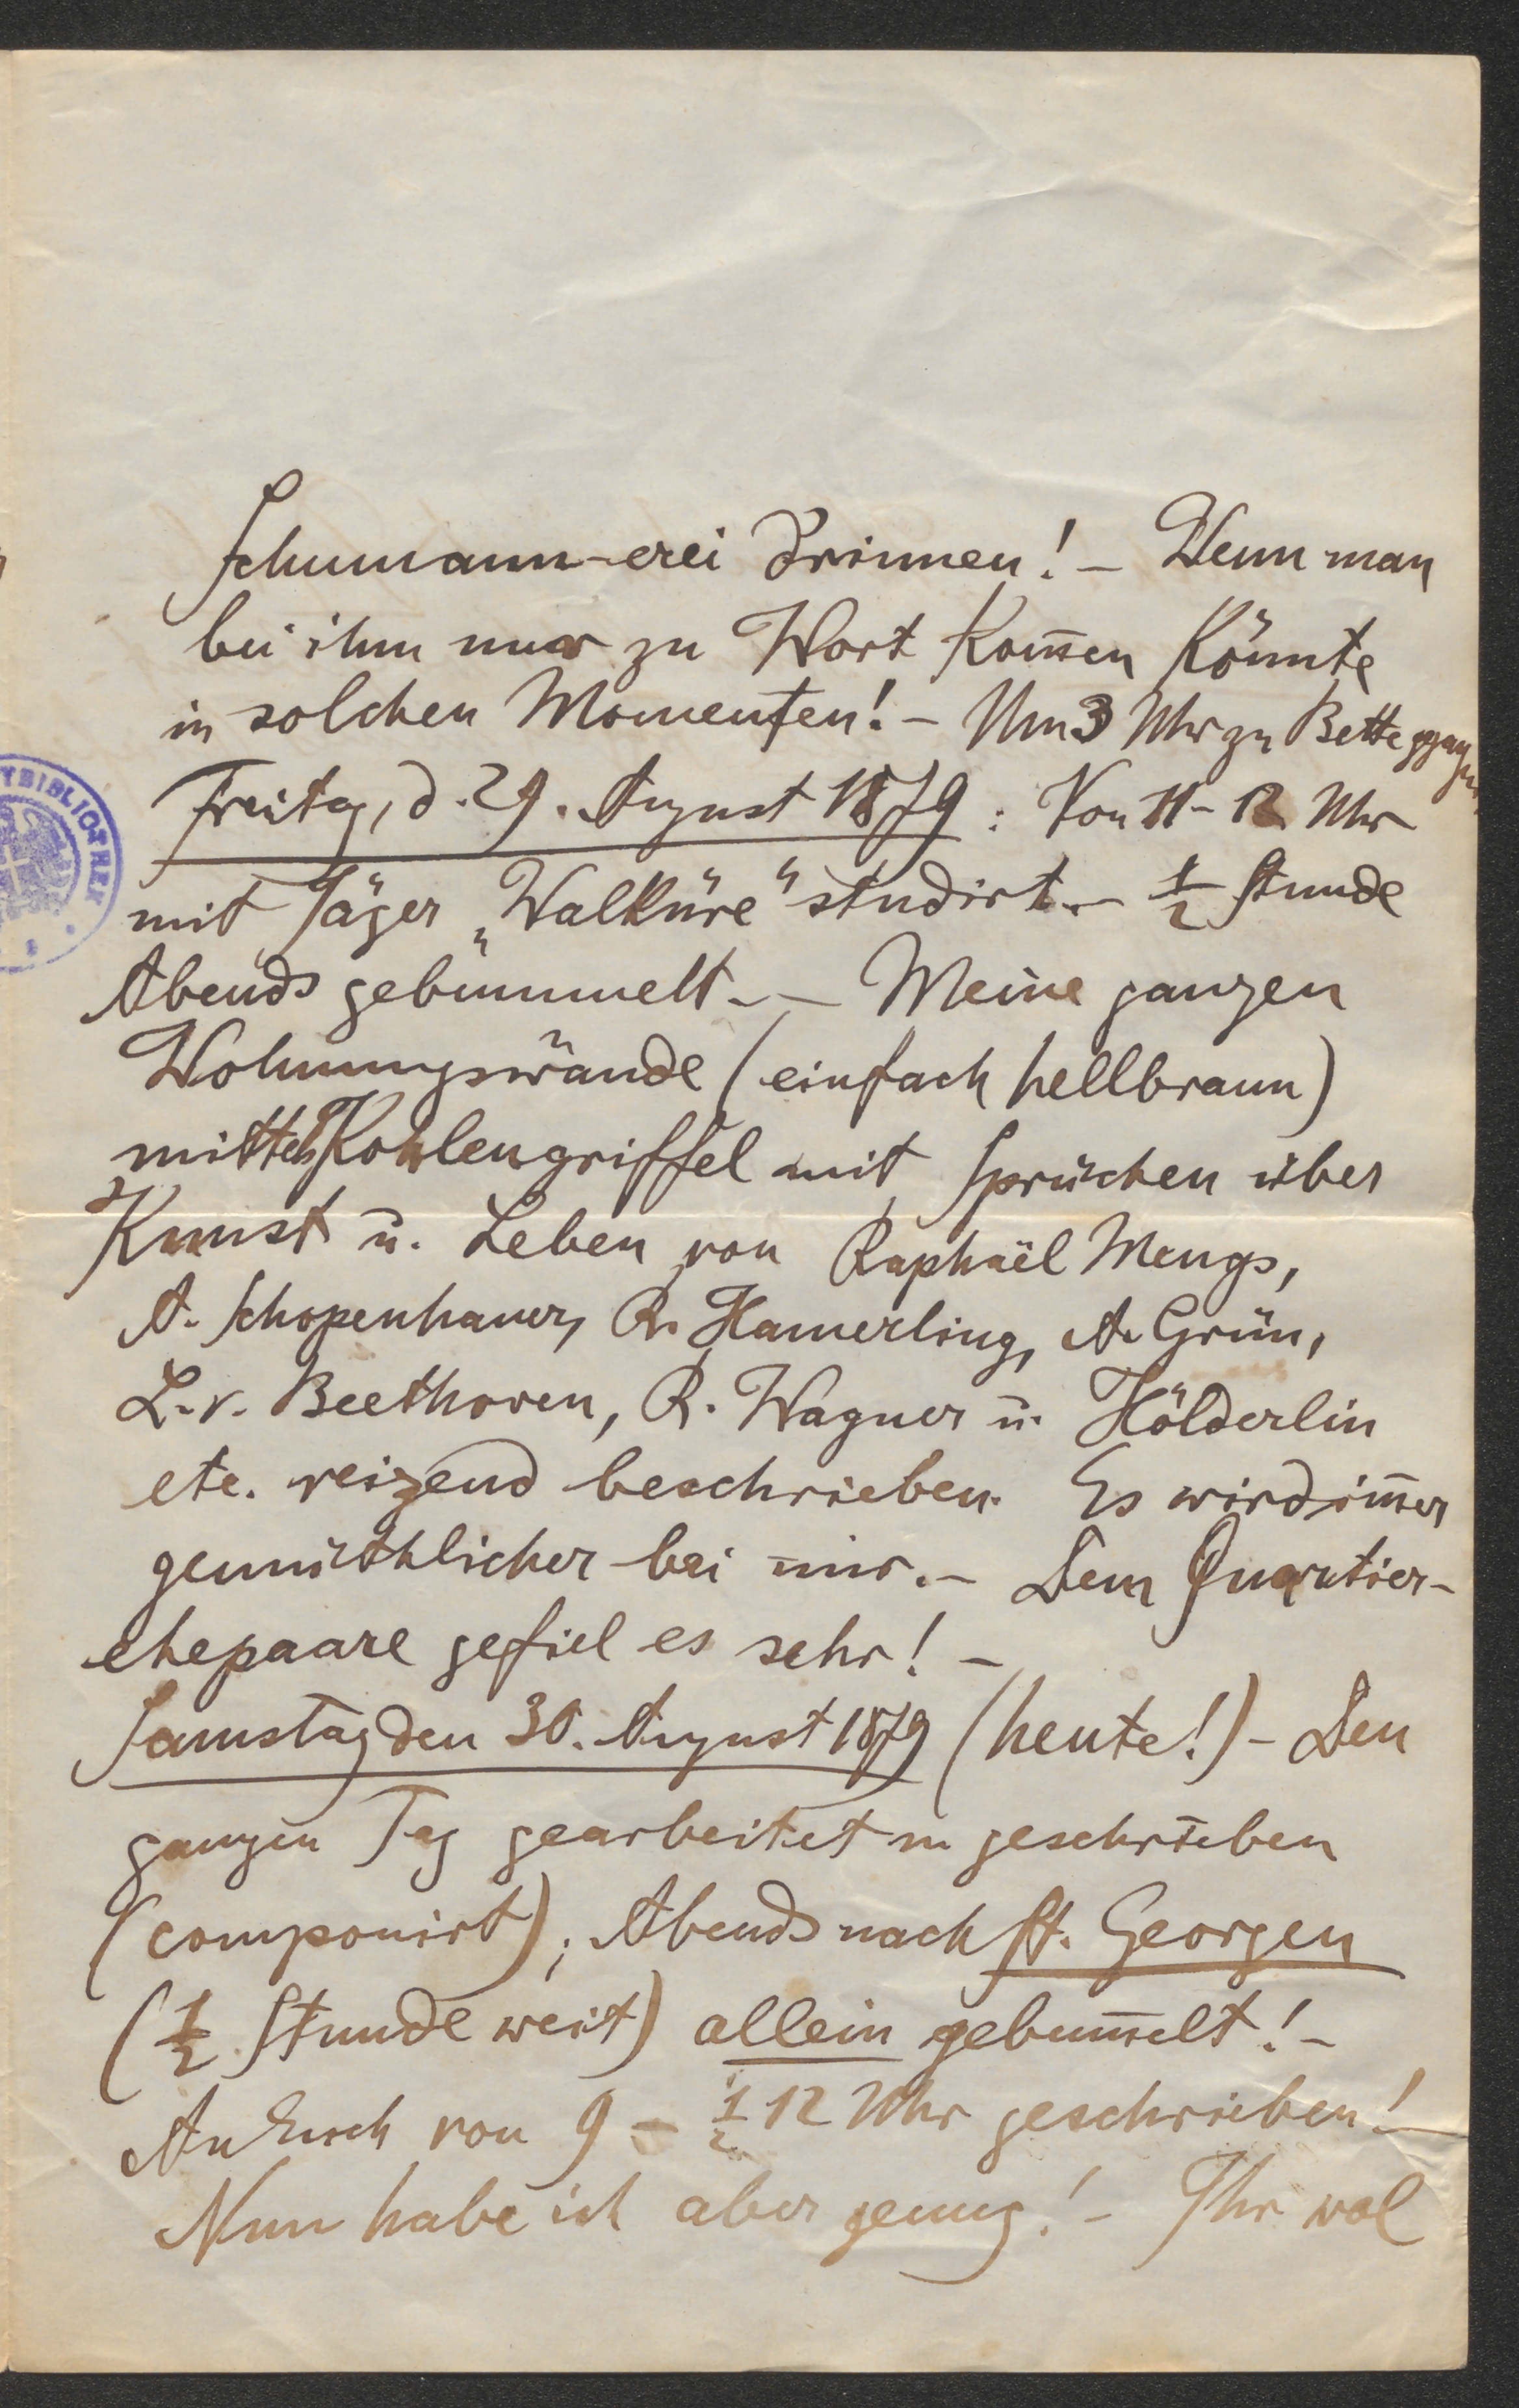 Schumann-erei drinnen! – Wenn man
bei ihm nur zu Wort kom̅en könnte
in solchen Momenten! – Um 3 Uhr zu Bette gegangen
Freitag, d. 29. August 1879: Von 11–12 Uhr
mit Jäger „Walküre“ studirt. – ½ Stunde
Abends gebummelt. – Meine ganzen
Wohnungswände (einfach hellbraun)
mittels Kohlengriffel mit Sprüchen über
Kunst u. Leben von Raphaël Mengs,
A. Schopenhauer, R. Hamerling, A. Grün,
L. v. Beethoven, R. Wagner u. Hölderlin
etc. reizend beschrieben. Es wird im̅er
gemüthlicher bei mir. – Dem Quartier-
ehepaare gefiel es sehr! –
Samstag den 30. August 1879 (heute!) – Den
ganzen Tag gearbeitet u. geschrieben
(componirt); Abends nach St. Georgen
(½ Stunde weit) allein gebum̅elt! –
An Euch von 9 – ½ 12 Uhr geschrieben! –
Nun habe ich aber genug! – Ihr wol
TBIBLIOTHEK